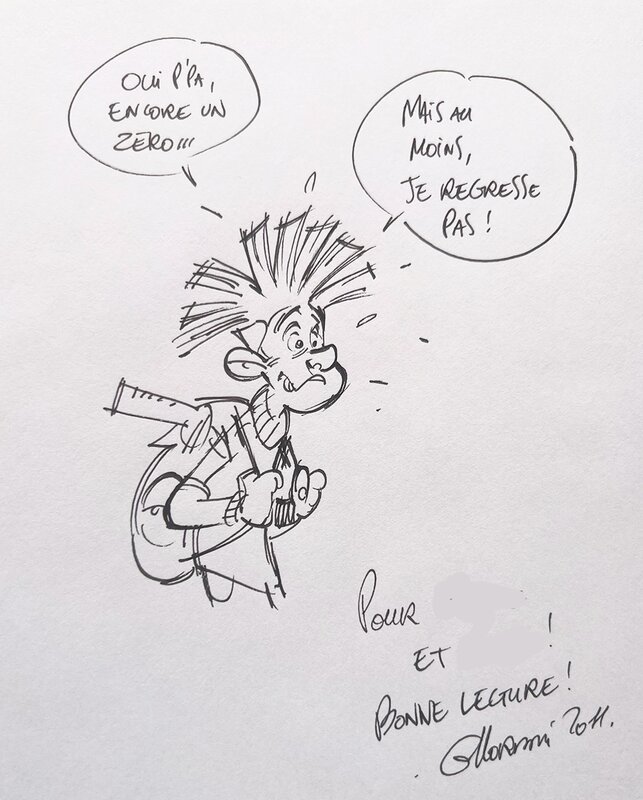 OUI P'PA,
ENCORE UN
ZÉRO...
MAIS AU
MOINS,
JE REGRESSE
PAS !
POUR !
ET
BONNE LECTURE !
2011.